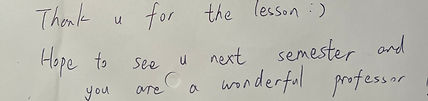 Thank u for the lesson :)
Hope to see u next semester and
you are a wonderful professor